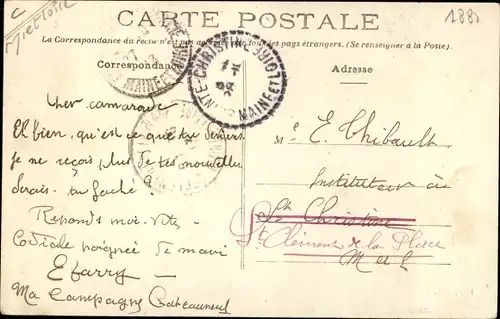 CARTE POSTALE
La Correspondance du recto n'est pas
tous les pays étrangers. (Se renseigner à la Poste).
Correspondance
Adresse
STE CHRISTINE
MAINE ET LOIRE
MAINE ET LOIRE
Cher camarade
Eh bien, qu'est ce que tu deviens
je ne reçois plus de tes nouvelles
serais-tu faché
Réponds moi vite
Cordiale poignée de main
M E. Thibault
Instituteur à
Ste Christine
St Clément de la Place
M et L
Ma Campagne Chateauneuf